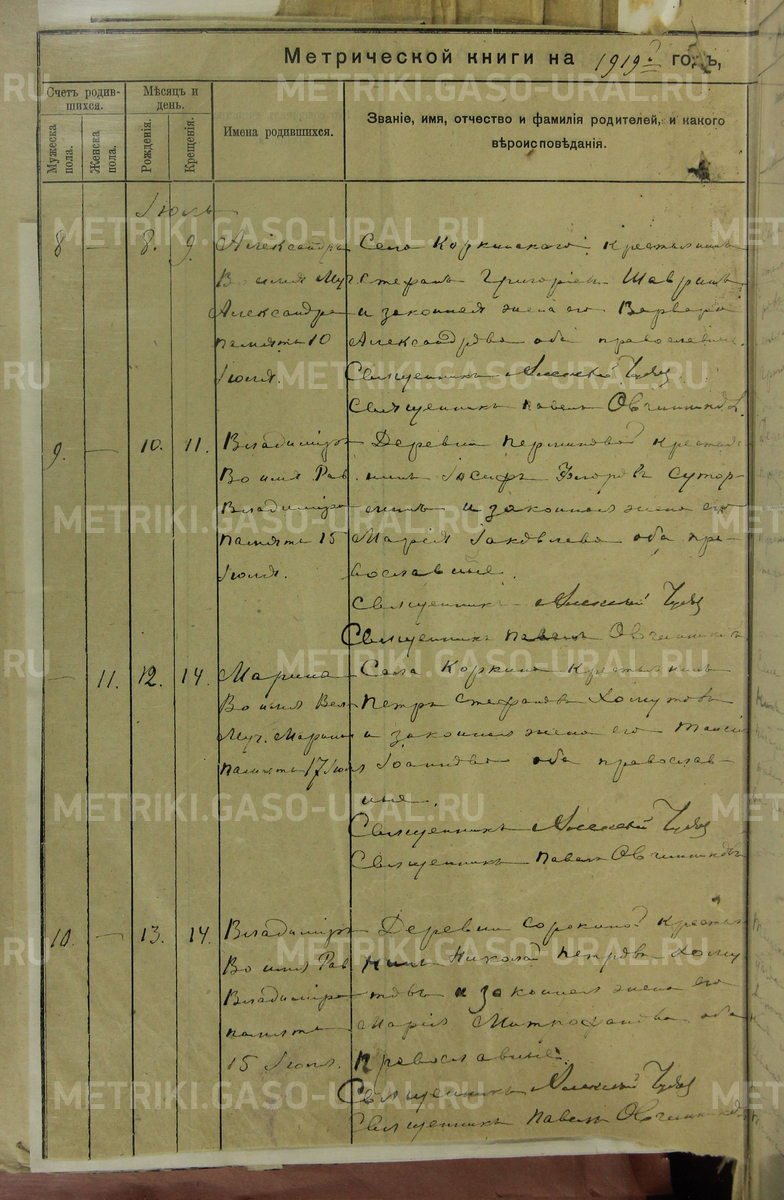 Метрической книги на 1919 годъ,
Счетъ родившихся.
Мѣсяцъ и день.
Имена родившихся.
Званіе, имя, отчество и фамилія родителей, и какого вѣроисповѣданія.
Мужеска пола.
Женска пола.
Рожденія.
Крещенія.
Іюль
8 — 8. 9. Александра Села Коркинскаго крестьянинъ
Во имя Муч. Стефанъ Григоріевъ Шавринъ
Александра и законная жена его Варвара
память 10 Александрова оба православные.
Іюля. Священникъ Алексей
Священникъ Павелъ Овчинниковъ
9. — 10. 11. Владиміръ Деревни Пермяковой крестья-
Во имя Рав. нинъ Іосифъ Егоровъ
Владиміра и законная жена его
память 15 Марія Іаковлева оба пра-
Іюля. вославные.
Священникъ Алексей
Священникъ Павелъ Овчинниковъ
— 11. 12. 14. Марина Села Коркина крестьянинъ
Во имя Вел. Петръ Стефановъ Хомутовъ
Муч. Марины и законная жена его Таисія
память 17 Іюля Іоаннова оба православ-
ные.
Священникъ Алексей
Священникъ Павелъ Овчинниковъ
10. — 13. 14. Владиміръ Деревни Сорокиной крестья-
Во имя Рав. нинъ Николай Петровъ Хому-
Владиміра товъ и законная жена его
память Марія Митрофанова оба
15 Іюля. православные.
Священникъ Алексей
Священникъ Павелъ Овчинниковъ
METRIKI.GASO-URAL.RU